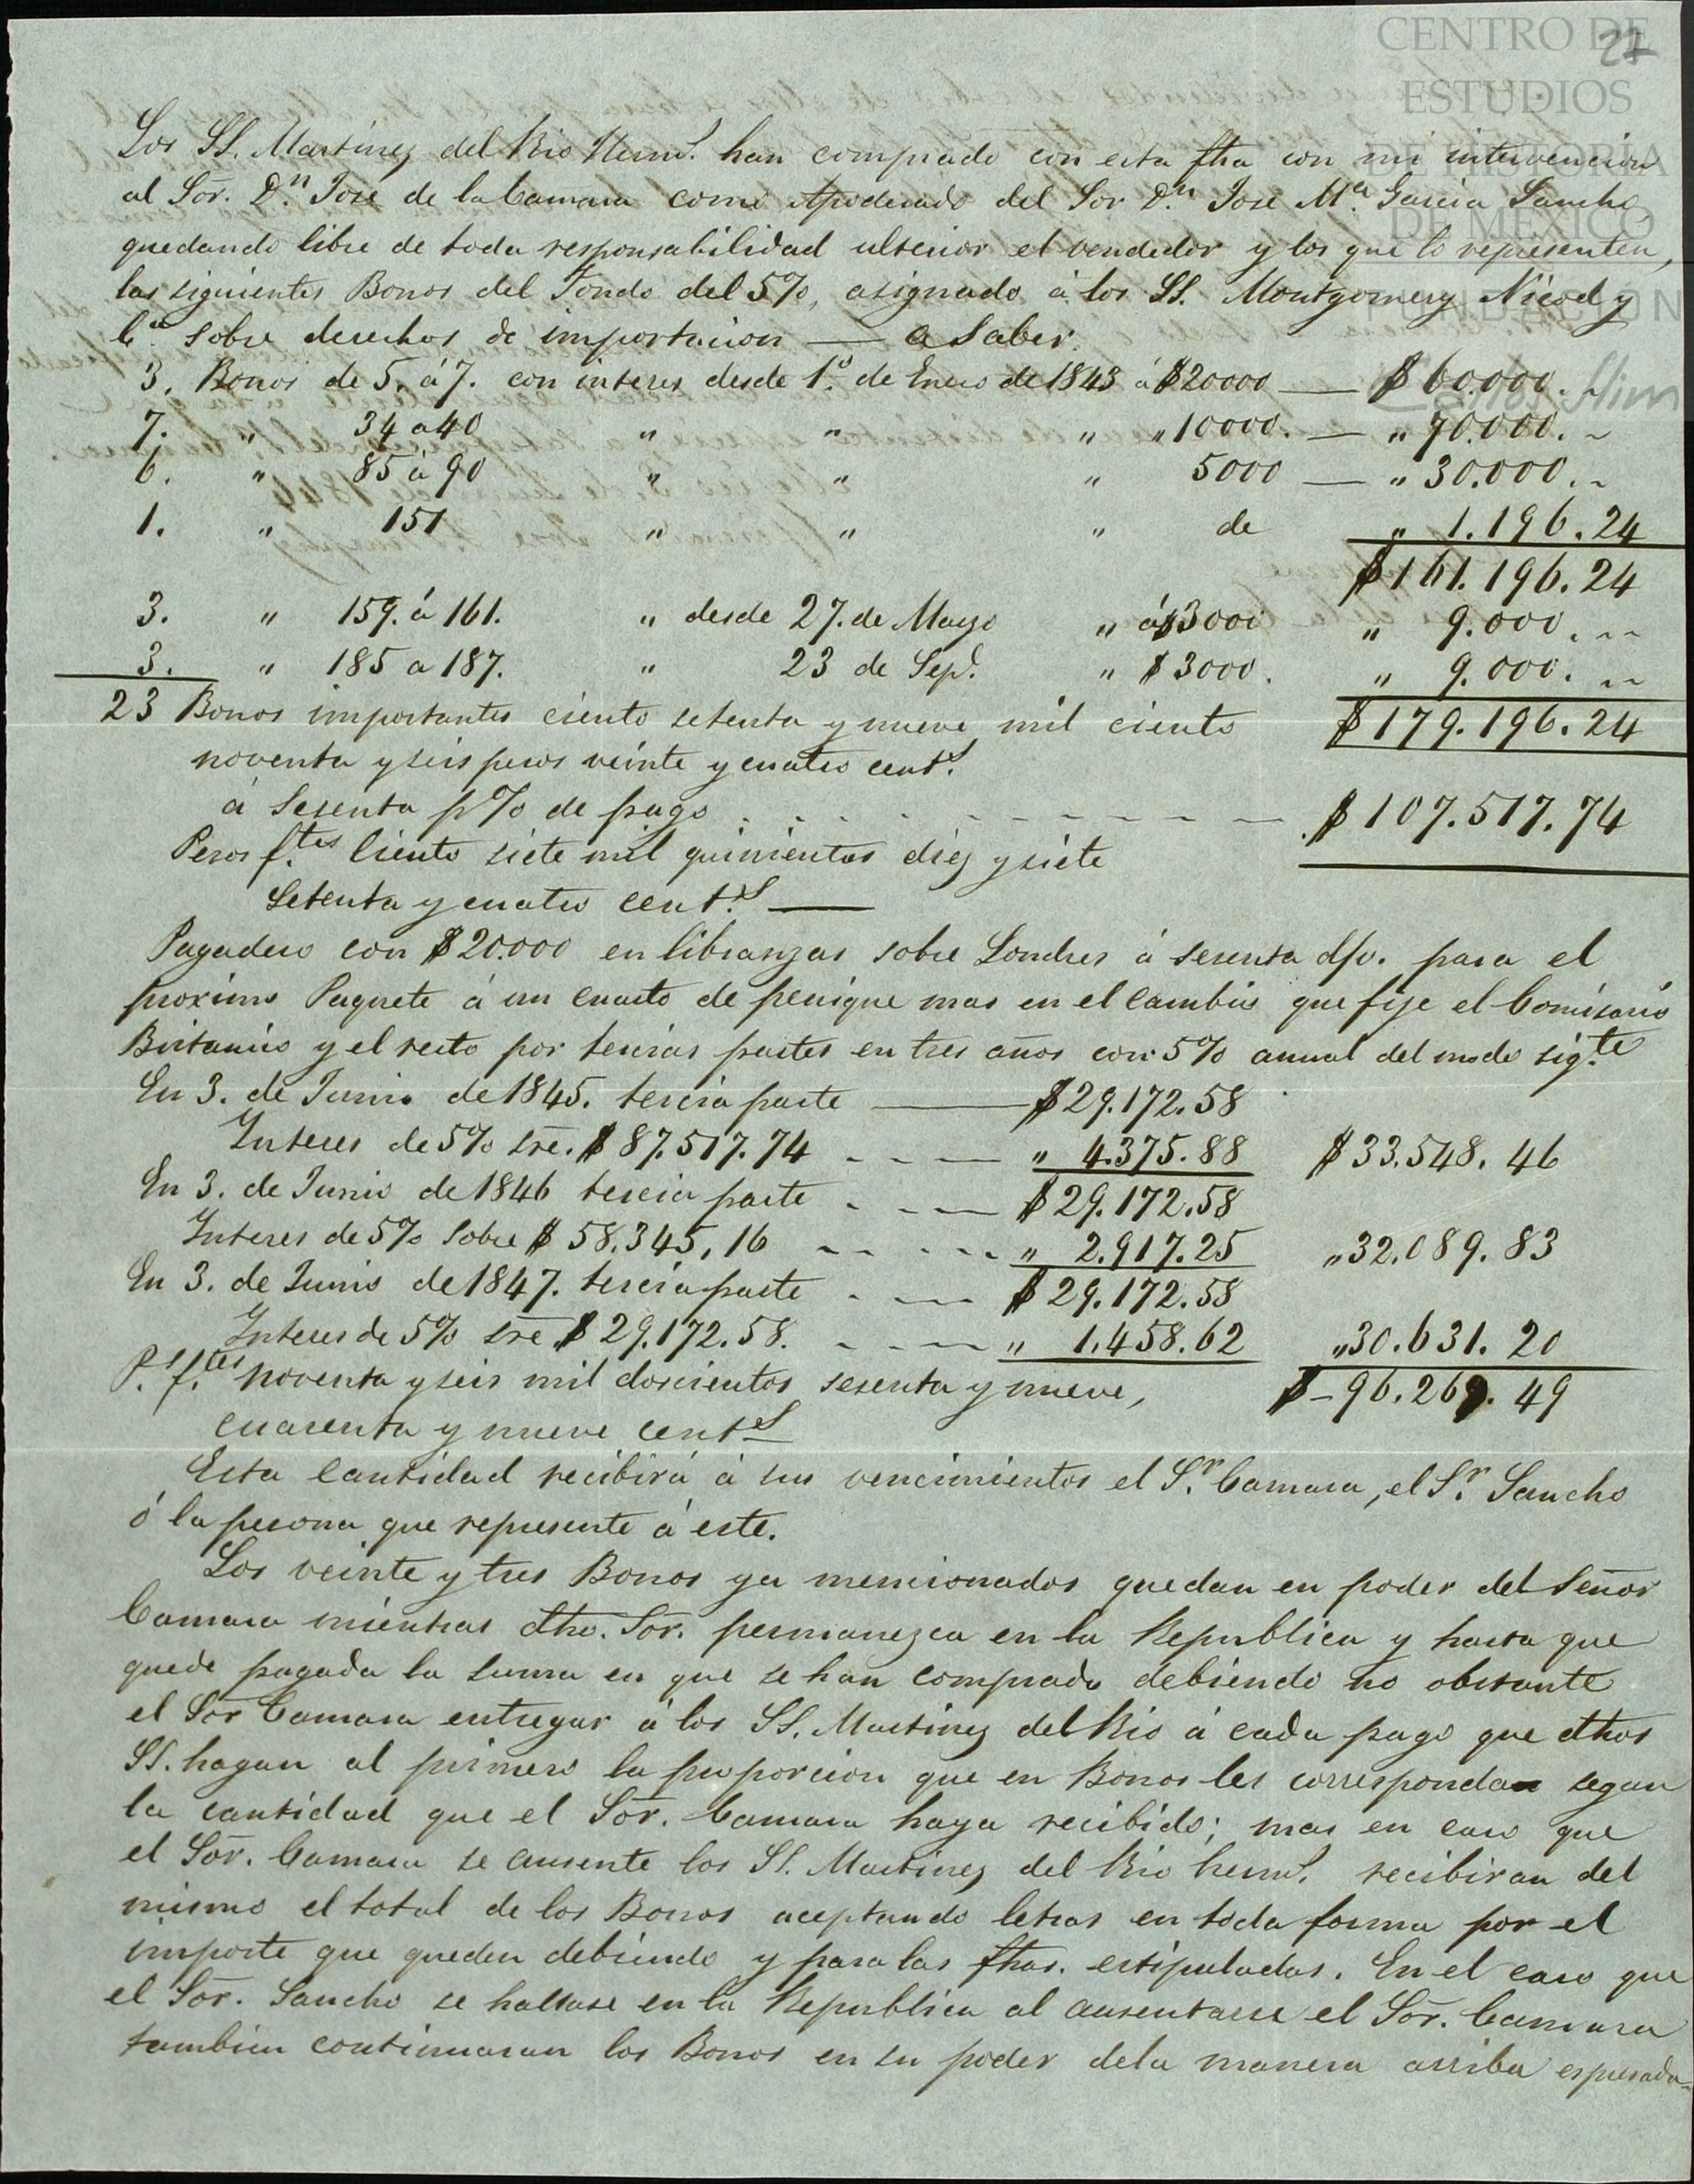 CENTRO DE
ESTUDIOS
DE HISTORIA
DE MÉXICO
FUNDACIÓN
Carlos Slim
27
Los SS. Martinez del Rio Herms. han comprado con esta fha con mi intervencion
al Sor. Dn. José de la Camara como Apoderado del Sor Dn. José Ma. Garcia Sancho,
quedando libre de toda responsabilidad ulterior el vendedor y los que lo representen,
los siguientes Bonos del Fondo del 5%, asignado á los SS. Montgomery Nicod y
Ca. sobre derechos de importacion — a Saber.
3. Bonos de 5. á 7. con interes desde 1o. de Enero de 1843 á $20000 — $60.000. ~
7. " 34 a 40 " " " " 10000. — " 70.000. ~
6. " 85 á 90 " " " 5000 — " 30.000. ~
1. " 151 " " " de " 1.196.24
$161.196.24
3. " 159. á 161. " desde 27. de Mayo " á $3000 " 9.000. ~~
3. " 185 a 187. " 23 de Sepe. " $3000. " 9.000. ~~
23 Bonos importantes ciento setenta y nueve mil ciento $179.196.24
noventa y seis pesos veinte y cuatro cents.
á Sesenta p% de pago . - - - - - - - $107.517.74
Pesos ftes. Ciento siete mil quinientos diez y siete
Setenta y cuatro cents. —
Pagadero con $20.000 en libranzas sobre Londres á sesenta d/v. para el
proximo Paquete á un cuarto de penique mas en el cambio que fije el Comisario
Britanico y el resto por terceras partes en tres años con 5% anual del modo sigte.
En 3. de Junio de 1845. tercera parte — $29.172.58
Interes de 5% sre. $87.517.74 - - — " 4.375.88 $33.548.46
En 3. de Junio de 1846 tercera parte . - — $29.172.58
Interes de 5% sobre $58.345,16 - - - - " 2.917.25 "32.089.83
En 3. de Junio de 1847. tercera parte . - — $29.172.58
Interes de 5% sre $29.172.58. - - — " 1.458.62 "30.631.20
Ps. ftes. noventa y seis mil doscientos sesenta y nueve, $-96.269.49
cuarenta y nueve cents
Esta Cantidad recibirá á sus vencimientos el Sr. Camara, el Sr. Sancho
ó la persona que represente á este.
Los veinte y tres Bonos ya mencionados quedan en poder del Señor
Camara mientras dho. Sor. permanezca en la Republica y hasta que
quede pagada la suma en que se han comprado debiendo no obstante
el Sor Camara entregar á los SS. Martinez del Rio á cada pago que dhos
SS. hagan al primero la proporcion que en Bonos les corresponda segun
la cantidad que el Sor. Camara haya recibido; mas en caso que
el Sor. Camara se ausente los SS. Martinez del Rio herms. recibiran del
mismo el total de los Bonos aceptando letras en toda forma por el
importe que queden debiendo y para las fhas. estipuladas. En el caso que
el Sor. Sancho se hallase en la Republica al ausentarse el Sor. Camara
tambien continuaran los Bonos en su poder dela manera arriba espresada